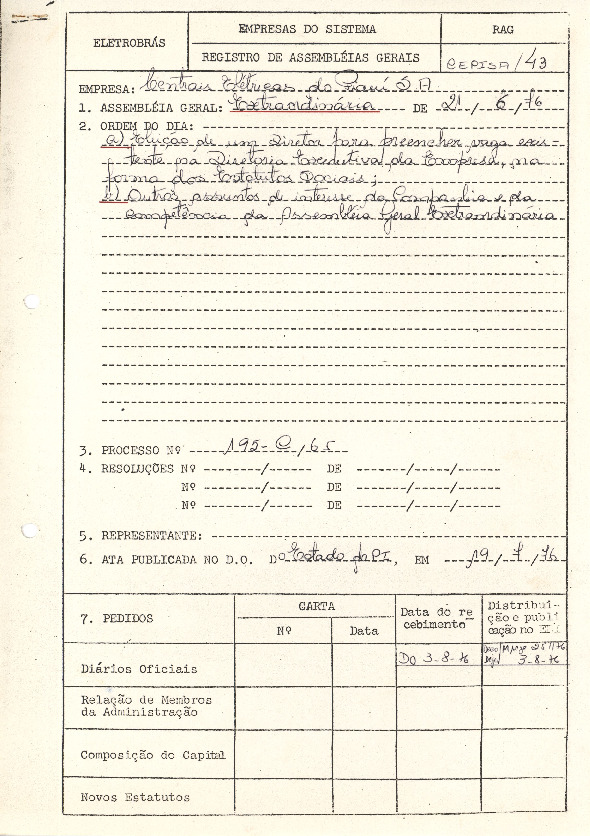 ELETROBRÁS
EMPRESAS DO SISTEMA
REGISTRO DE ASSEMBLÉIAS GERAIS
RAG
CEPISA/43
EMPRESA: Centrais Elétricas do Piauí S.A
1. ASSEMBLÉIA GERAL: Extraordinária DE 21/6/76
2. ORDEM DO DIA:
a) Eleição de um Diretor para preencher vaga exis-
tente na Diretoria Executiva da Empresa, na
forma dos Estatutos Sociais;
b) Outros assuntos de interesse da Companhia e da
competência da Assembléia Geral Extraordinária
3. PROCESSO Nº 195-C/65
4. RESOLUÇÕES Nº ------/----- DE ------/----/----
Nº ------/----- DE ------/----/----
Nº ------/----- DE ------/----/----
5. REPRESENTANTE:
6. ATA PUBLICADA NO D.O. DO Estado do PI, EM 19/7/76
7. PEDIDOS
CARTA
Nº
Data
Data do re
cebimento
Distribui-
ção e publi
cação no
Diários Oficiais
DO 3-8-76
3-8-76
Relação de Membros
da Administração
Composição do Capital
Novos Estatutos